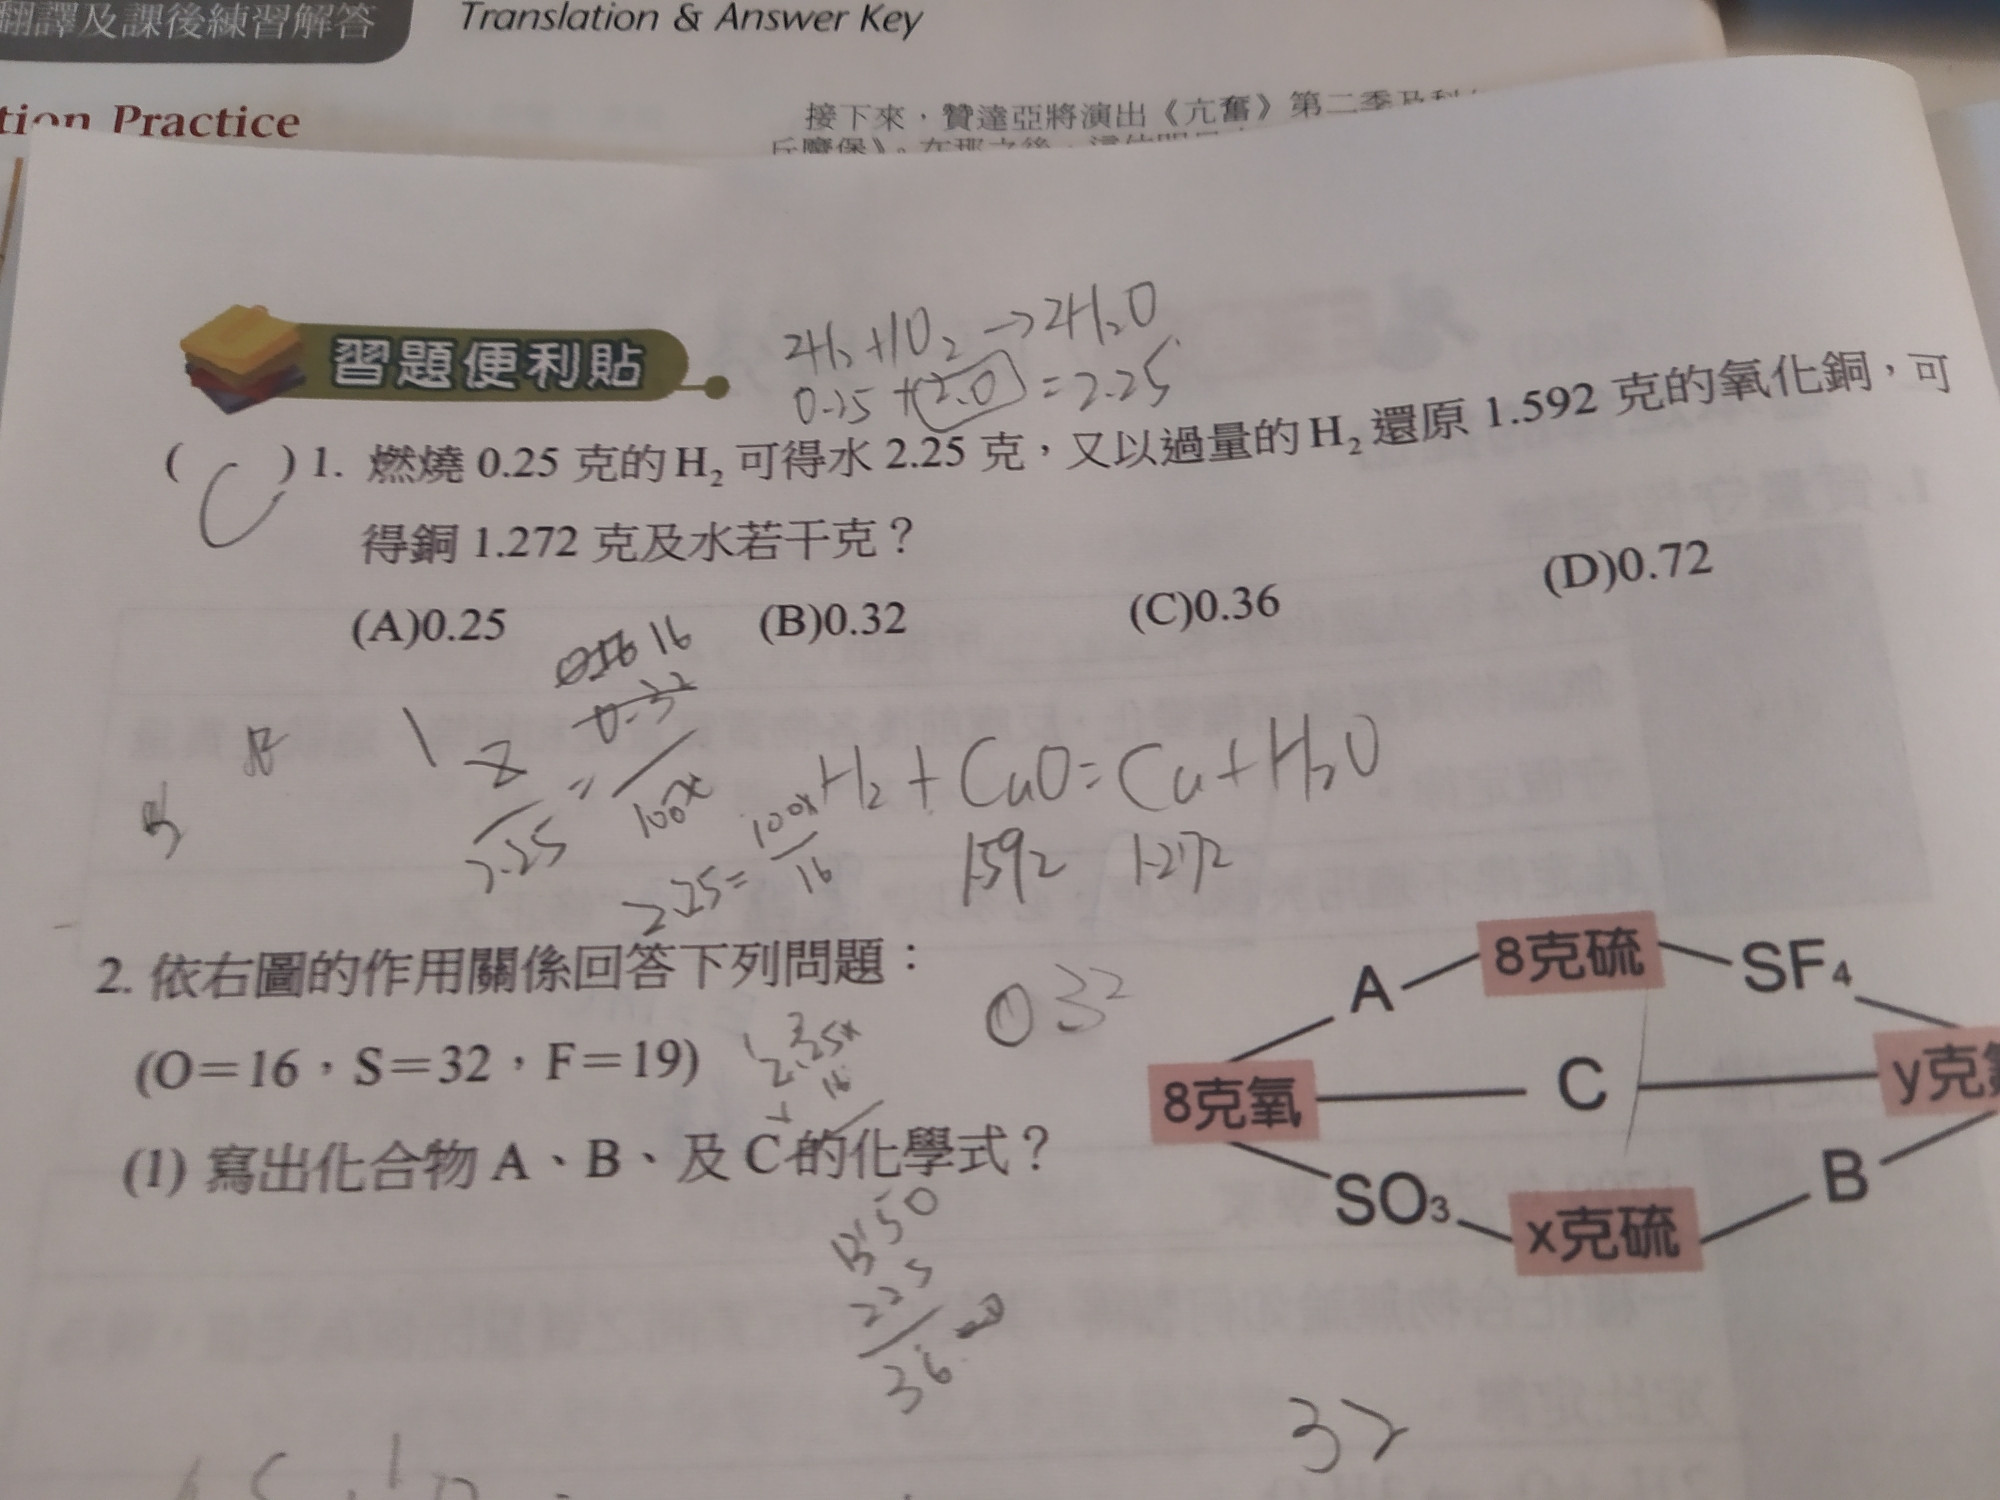 翻譯及課後練習解答
Translation & Answer Key
tion Practice
接下來，贊達亞將演出《亢奮》第二季及科
習題便利貼
2H₂+1O₂→2H₂O
0.25+2.0=2.25
(C)1. 燃燒 0.25 克的 H₂ 可得水 2.25 克，又以過量的 H₂ 還原 1.592 克的氧化銅，可
得銅 1.272 克及水若干克？
(A)0.25 (B)0.32 (C)0.36 (D)0.72
16
0.32
2.25 = 100x
H₂+CuO=Cu+H₂O
1.592 1.272
2.25=100x/16
2. 依右圖的作用關係回答下列問題：
(O=16，S=32，F=19)
0.32
(1) 寫出化合物 A、B、及 C 的化學式？
A
8克硫
SF₄
8克氧
C
y克
SO₃
x克硫
B
225
36
32